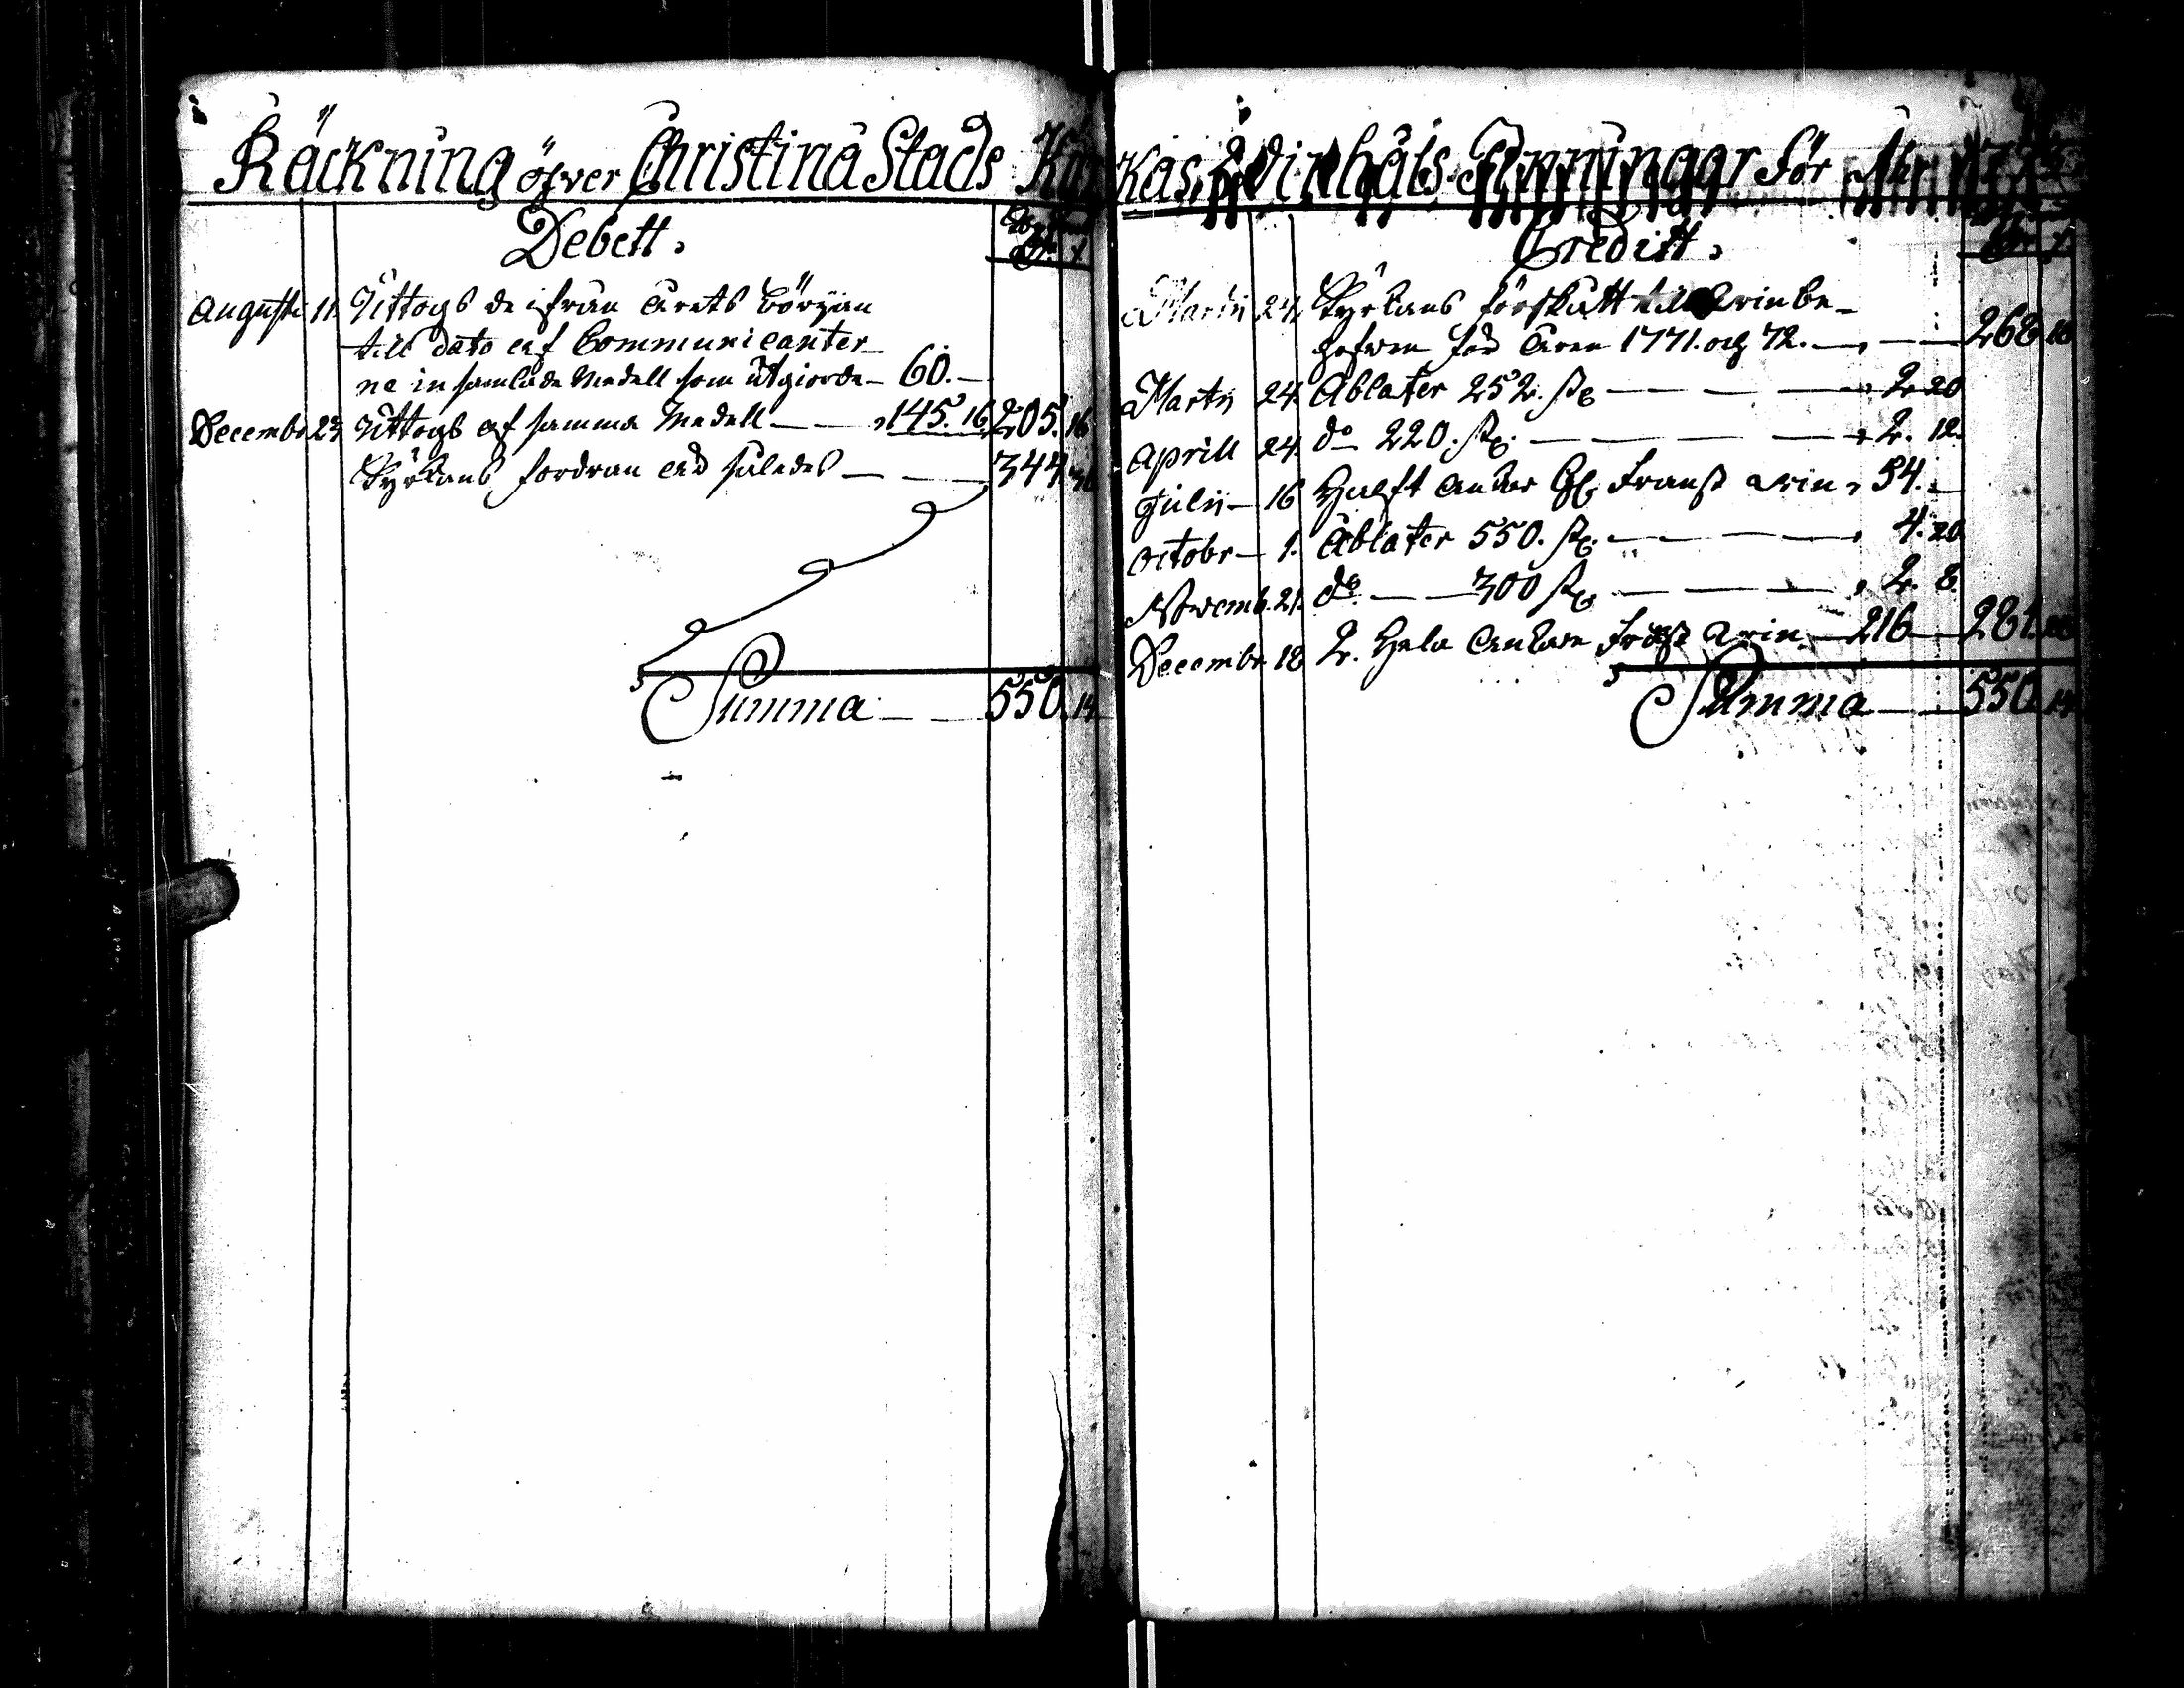 Räckning öfver Christinæ Stads
Debett.
Augusti 11. Uttogs de ifrån årets början
till dato af Communicanter-
ne insamlade Medell som utgiorde- 60.-
Decembr 23. Uttogs af samma Medell — 145. 16. 205. 16
Kyrkans fordran är således — 344. 30
Summa — 550. 14
Kas Vinhåls Penningar för
Creditt.
Martii 24. Kyrkans förskått till Vin be-
hofwen för åren 1771. och 72. — 268.
Martii 24. Ablater 252. st — 2. 20
Aprill 24. do 220. st. — 2. 12.
Julii — 16 Halft Ankar Fransk win, 54. —
Octobr — 1. Ablater 550. st. — 4. 20
Novemb. 21. do — 300 st — 2. 8.
Decembr 18 2. Hela Ankare win — 216 — 281.
Summa — 550. 14